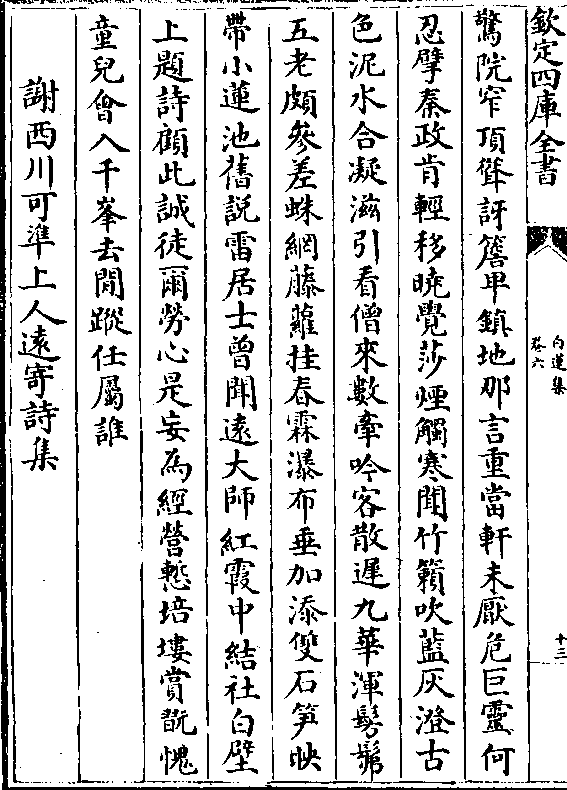 欽定四庫全書
白蓮集
卷六
十三
驚院窄頂聳訝簷卑鎮地那言重當軒未厭危巨靈何
忍擘秦政肯輕移曉覺莎煙觸寒聞竹籟吹藍灰澄古
色泥水合凝滋引看僧來數牽吟客散遲九華渾髣髴
五老頗參差蛛網藤蘿挂春霖瀑布垂加添雙石笋映
帶小蓮池舊説雷居士曾聞遠大師紅霞中結社白壁
上題詩顧此誠徒爾勞心是妄為經營慙培塿賞翫愧
童兒會入千峯去閒蹤任屬誰
謝西川可準上人遠寄詩集